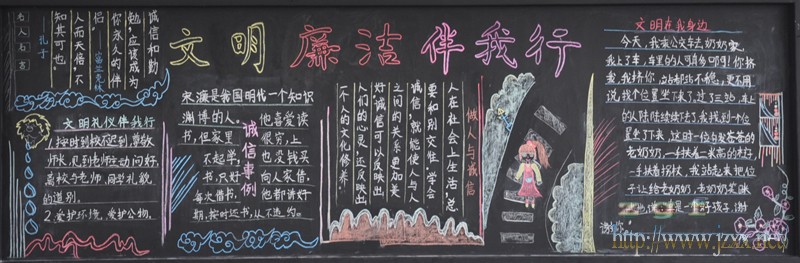 文明廉洁伴我行
名人名言
诚信和勤
勉，应该成为
你永久的伴
侣。
富兰克林
人而无信，不
知其可也。
孔子
文明礼仪伴我行
1.按时到校不迟到，尊敬
师长，见到老师主动问好，
离校与老师、同学礼貌
的道别。
2.爱护环境，爱护公物。
宋濂是我国明代一个知识
渊博的人。
他喜爱读
书，但家里
很穷，上
不起学，
也没钱买
书，只好
向人家借，
每次借书，
他都讲好
期，按时还书，从不违约。
诚信事例
做人与诚信
人在社会上生活，总
要和别交往，学会
诚信，就能使人与人
之间的关系更加美
好，诚信可以反映出
人们的心灵，还反映出
一个人的文化修养。
文明在我身边
今天，我乘公交车去奶奶家，
我上了车，车里的人可真多呀！你挤
我，我挤你，站都站不稳，更不用
说找个位置坐下来了，过了三站，车上
的人陆陆续续下去了，我找到个位
置坐下来，这时一位白发苍苍的
老奶奶，一手扶着
一手拄着拐杖，我站起来把位
子让给老奶奶，老奶奶笑眯
是个好孩子，谢
谢你
http://www.jzxx.net